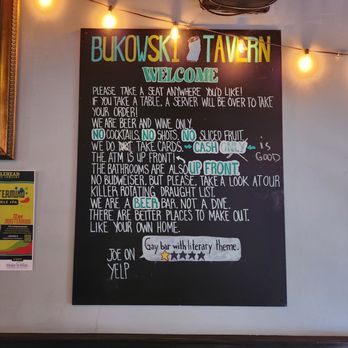 BUKOWSKI TAVERN
WELCOME
PLEASE TAKE A SEAT ANYWHERE YOU'D LIKE!
IF YOU TAKE A TABLE, A SERVER WILL BE OVER TO TAKE
YOUR ORDER!
WE ARE BEER AND WINE ONLY.
NO COCKTAILS, NO SHOTS, NO SLICED FRUIT.
WE DO TAKE CARDS. CASH ONLY is
GOOD
THE ATM IS UP FRONT!
THE BATHROOMS ARE ALSO UP FRONT.
NO BUDWEISER, BUT PLEASE, TAKE A LOOK AT OUR
KILLER ROTATING DRAUGHT LIST.
WE ARE A BEER BAR, NOT A DIVE.
THERE ARE BETTER PLACES TO MAKE OUT.
LIKE YOUR OWN HOME.
Gay bar with literary theme.
JOE ON
YELP